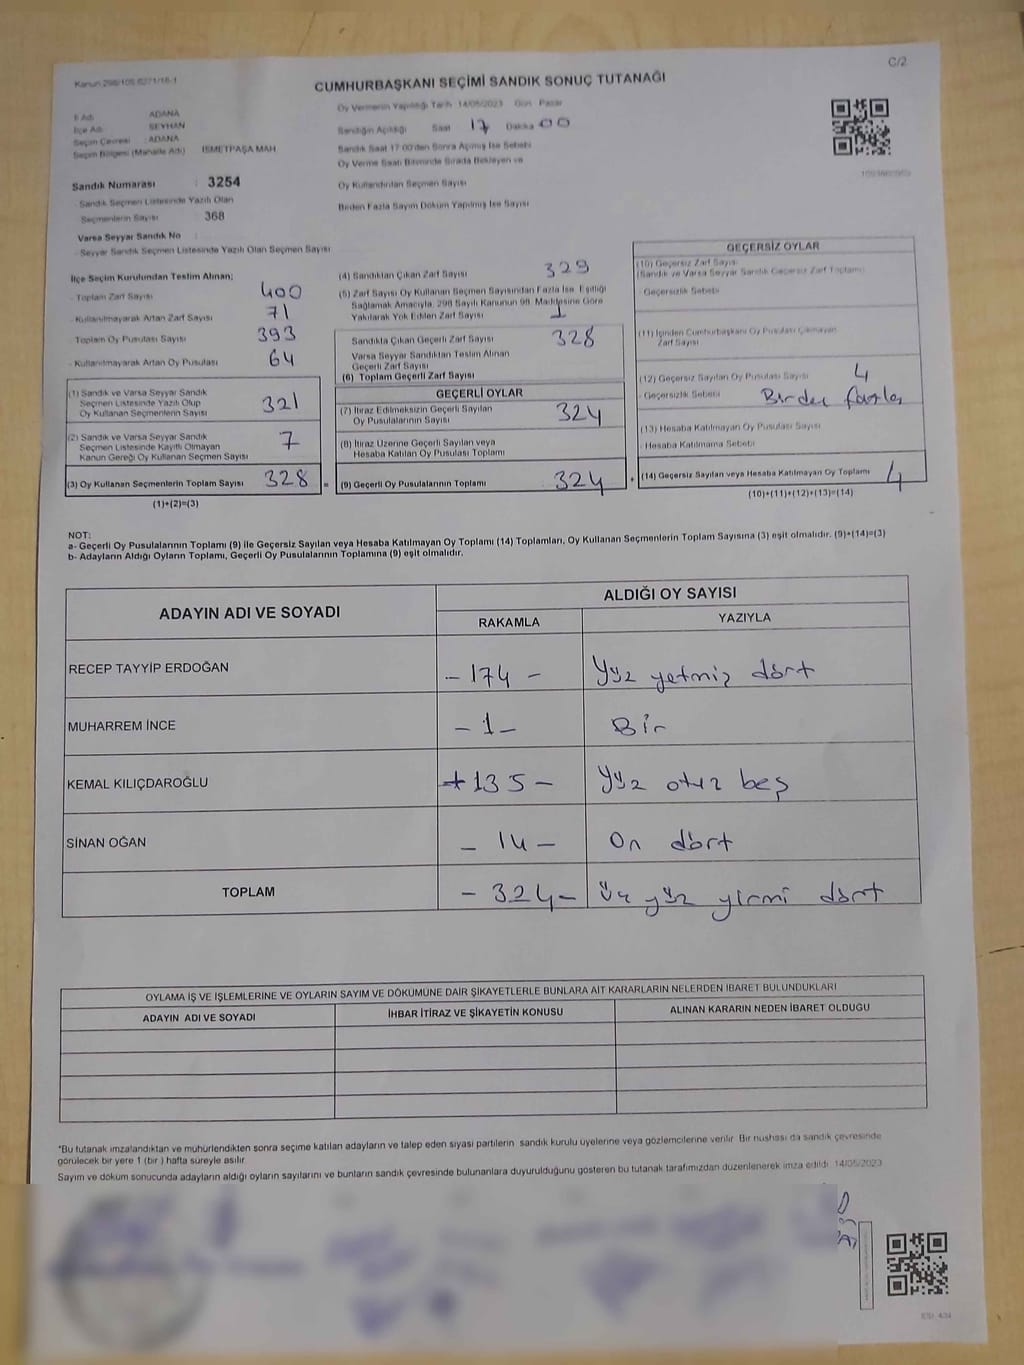 C/2
CUMHURBAŞKANI SEÇİMİ SANDIK SONUÇ TUTANAĞI
İl Adı ADANA
İlçe Adı SEYHAN
Seçim Çevresi : ADANA
Seçim Bölgesi (Mahalle Adı) İSMETPAŞA MAH.
Sandık Numarası : 3254
Sandık Seçmen Listesinde Yazılı Olan
Seçmenlerin Sayısı : 368
Varsa Seyyar Sandık No
Seyyar Sandık Seçmen Listesinde Yazılı Olan Seçmen Sayısı
Oy Vermenin Yapıldığı Tarih 14/05/2023 Gün Pazar
Sandığın Açıldığı Saat 17 Dakika 00
Sandık Saat 17:00'den Sonra Açılmış İse Sebebi
Oy Verme Saati Bitiminde Sırada Bekleyen ve
Oy Kullandırılan Seçmen Sayısı
Birden Fazla Sayım Döküm Yapılmış İse Sayısı
İlçe Seçim Kurulundan Teslim Alınan;
- Toplam Zarf Sayısı 400
- Kullanılmayarak Artan Zarf Sayısı 71
- Toplam Oy Pusulası Sayısı 393
- Kullanılmayarak Artan Oy Pusulası 64
(1) Sandık ve Varsa Seyyar Sandık
Seçmen Listesinde Yazılı Olup
Oy Kullanan Seçmenlerin Sayısı 321
(2) Sandık ve Varsa Seyyar Sandık
Seçmen Listesinde Kayıtlı Olmayan
Kanun Gereği Oy Kullanan Seçmen Sayısı 7
(3) Oy Kullanan Seçmenlerin Toplam Sayısı 328
(1)+(2)=(3)
(4) Sandıktan Çıkan Zarf Sayısı 329
(5) Zarf Sayısı Oy Kullanan Seçmen Sayısından Fazla İse, Eşitliği
Sağlamak Amacıyla, 298 Sayılı Kanunun 98. Maddesine Göre
Yakılarak Yok Edilen Zarf Sayısı 1
Sandıkta Çıkan Geçerli Zarf Sayısı 328
Varsa Seyyar Sandıktan Teslim Alınan
Geçerli Zarf Sayısı
(6) Toplam Geçerli Zarf Sayısı
GEÇERLİ OYLAR
(7) İtiraz Edilmeksizin Geçerli Sayılan
Oy Pusulalarının Sayısı 324
(8) İtiraz Üzerine Geçerli Sayılan veya
Hesaba Katılan Oy Pusulası Toplamı
= (9) Geçerli Oy Pusulalarının Toplamı 324
GEÇERSİZ OYLAR
(10) Geçersiz Zarf Sayısı
(Sandık ve Varsa Seyyar Sandık Geçersiz Zarf Toplamı)
- Geçersizlik Sebebi
(11) İçinden Cumhurbaşkanı Oy Pusulası Çıkmayan
Zarf Sayısı
(12) Geçersiz Sayılan Oy Pusulası Sayısı 4
- Geçersizlik Sebebi Birden fazla
(13) Hesaba Katılmayan Oy Pusulası Sayısı
- Hesaba Katılmama Sebebi
+ (14) Geçersiz Sayılan veya Hesaba Katılmayan Oy Toplamı 4
(10)+(11)+(12)+(13)=(14)
NOT:
a- Geçerli Oy Pusulalarının Toplamı (9) ile Geçersiz Sayılan veya Hesaba Katılmayan Oy Toplamı (14) Toplamları, Oy Kullanan Seçmenlerin Toplam Sayısına (3) eşit olmalıdır. (9)+(14)=(3)
b- Adayların Aldığı Oyların Toplamı, Geçerli Oy Pusulalarının Toplamına (9) eşit olmalıdır.
ADAYIN ADI VE SOYADI ALDIĞI OY SAYISI
RAKAMLA YAZIYLA
RECEP TAYYİP ERDOĞAN - 174 - Yüz yetmiş dört
MUHARREM İNCE - 1 - Bir
KEMAL KILIÇDAROĞLU - 135 - Yüz otuz beş
SİNAN OĞAN - 14 - On dört
TOPLAM - 324 - Üç yüz yirmi dört
OYLAMA İŞ VE İŞLEMLERİNE VE OYLARIN SAYIM VE DÖKÜMÜNE DAİR ŞİKAYETLERLE BUNLARA AİT KARARLARIN NELERDEN İBARET BULUNDUKLARI
ADAYIN ADI VE SOYADI İHBAR İTİRAZ VE ŞİKAYETİN KONUSU ALINAN KARARIN NEDEN İBARET OLDUĞU
*Bu tutanak imzalandıktan ve mühürlendikten sonra seçime katılan adayların ve talep eden siyasi partilerin sandık kurulu üyelerine veya gözlemcilerine verilir. Bir nüshası da sandık çevresinde
görülecek bir yere 1 (bir ) hafta süreyle asılır.
Sayım ve döküm sonucunda adayların aldığı oyların sayılarını ve bunların sandık çevresinde bulunanlara duyurulduğunu gösteren bu tutanak tarafımızdan düzenlenerek imza edildi. 14/05/2023